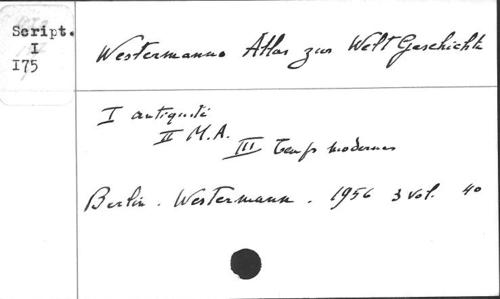 Script.
I
I75
Westermanns Atlas zur Welt Geschichte
I antiquité
II M.A.
III Temps modernes
Berlin . Westermann . 1956 3 vol. 4o